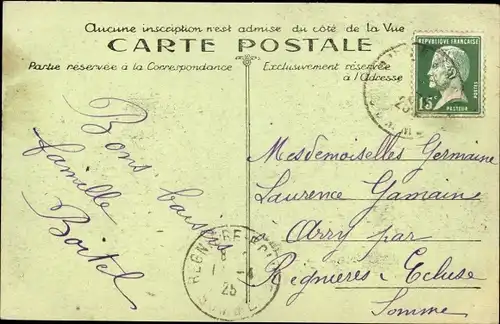 Aucune inscription n'est admise du côté de la Vue
CARTE POSTALE
Partie réservée à la Correspondance
Exclusivement réservée
à l'Adresse
REPUBLIQUE FRANÇAISE
POSTES
15c
PASTEUR
Bons baisers
famille
Boitel
Mesdemoiselles Germaine
Laurence Gamain
Arry par
Regnières-Ecluse
Somme
25